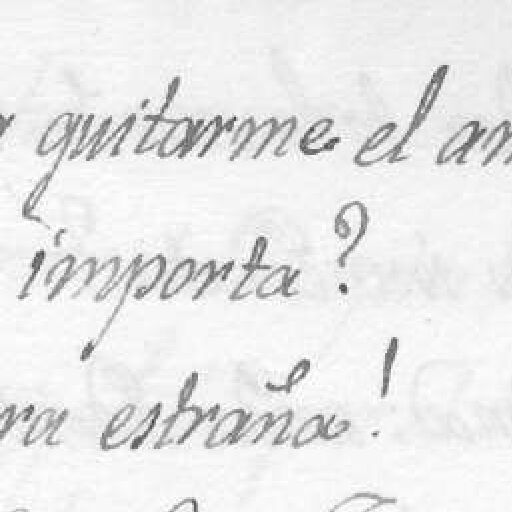 quitarme el
importa?
estraña!